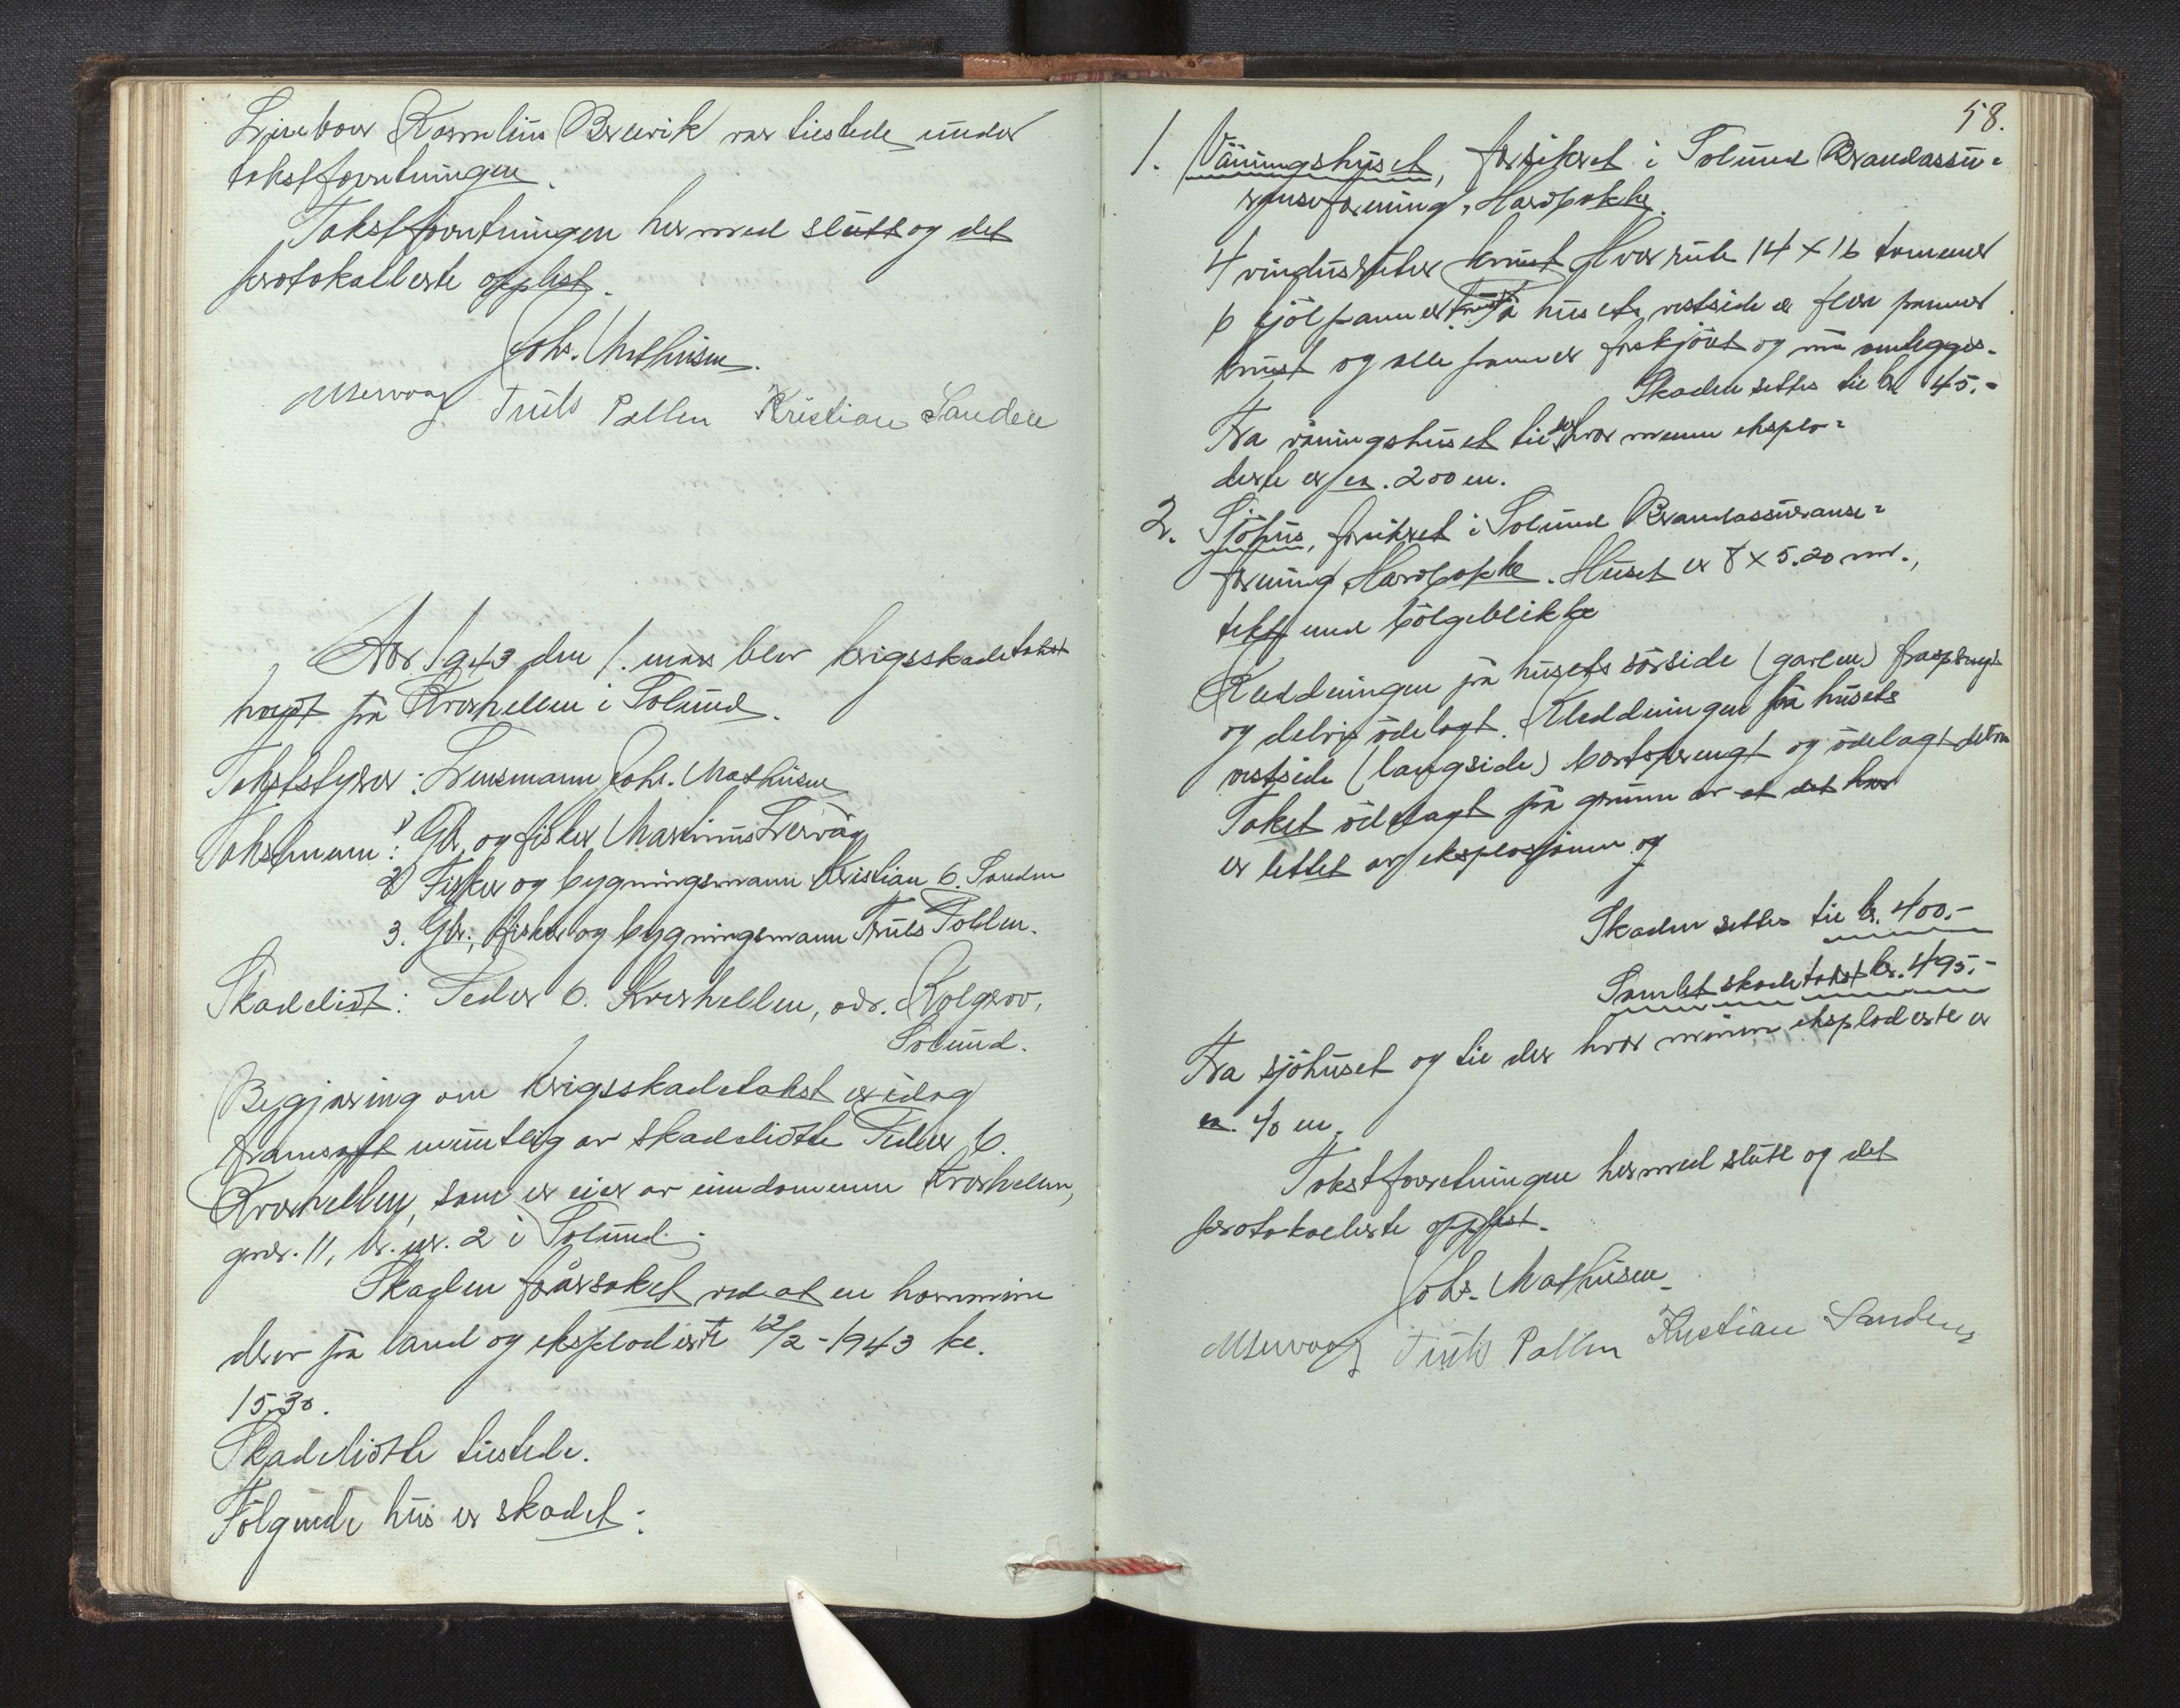 Leieboer Kornelius Brevik var tilstede under
takstforretningen.
Takstforretningen hermed slutt og det
protokollerte opplest.
Johs. Mathisen.
MLervaag Truls Pollen Kristian Sanden
Aar 1943 den 1. mars blev krigsskadetakst
hvgt på Krakhellen i Solund.
Takststyrer: Lensmann Johs. Mathisen
Takstmenn: 1) Gbr. og fisker Martinus Lervåg
2) Fisker og bygningsmann Kristian O. Sanden
3. Gbr., fisker og bygningsmann Truls Pollen.
Skadelidt: Peder O. Krakhellen, adr. Kolgrov,
Solund.
Begjæring om krigsskadetakst er idag
framsatt muntlig av skadelidte Peder O.
Krakhellen, som er eier av eiendommen Krakhellen,
gnr. 11, br. nr. 2 i Solund.
Skaden forårsaket ved at en hornmine
drev på land og eksploderte 12/2-1943 kl.
15.30.
Skadelidte tilstede.
Følgende hus er skadet:
58.
1. Våningshuset, forsikret i Solund Brandassu=
ranseforening, Hardbakke.
4 vindusruter knust. Hver rute 14 x 16 tommer
6 kjølpanner knust. På husets vestside er flere panner
knust og alle panner forskjøvet og må omlegges.
Skaden settes til kr. 45.-
Fra våningshuset til der hvor minen eksplo=
derte er ca. 200 m.
2. Sjøhus, forsikret i Solund Brandassuranse=
forening, Hardbakke. Huset er 8 x 5.20 m.,
tekt med bølgeblikk
Kledningen på husets sørside (gavlen) frasprengt
og delvis ødelagt. Kledningen på husets
vestside (langside) bortsprengt og ødelagt delvis
Taket ødelagt på grunn av at det har
er lettet av eksplosjonen og
Skaden settes til kr. 400.-
Samlet skadetakst kr. 495.-
Fra sjøhuset og til der hvor minen eksploderte er
ca. 40 m.
Takstforretningen hermed slutt og det
protokollerte opplest.
Johs. Mathisen.
MLervaag Truls Pollen Kristian Sanden